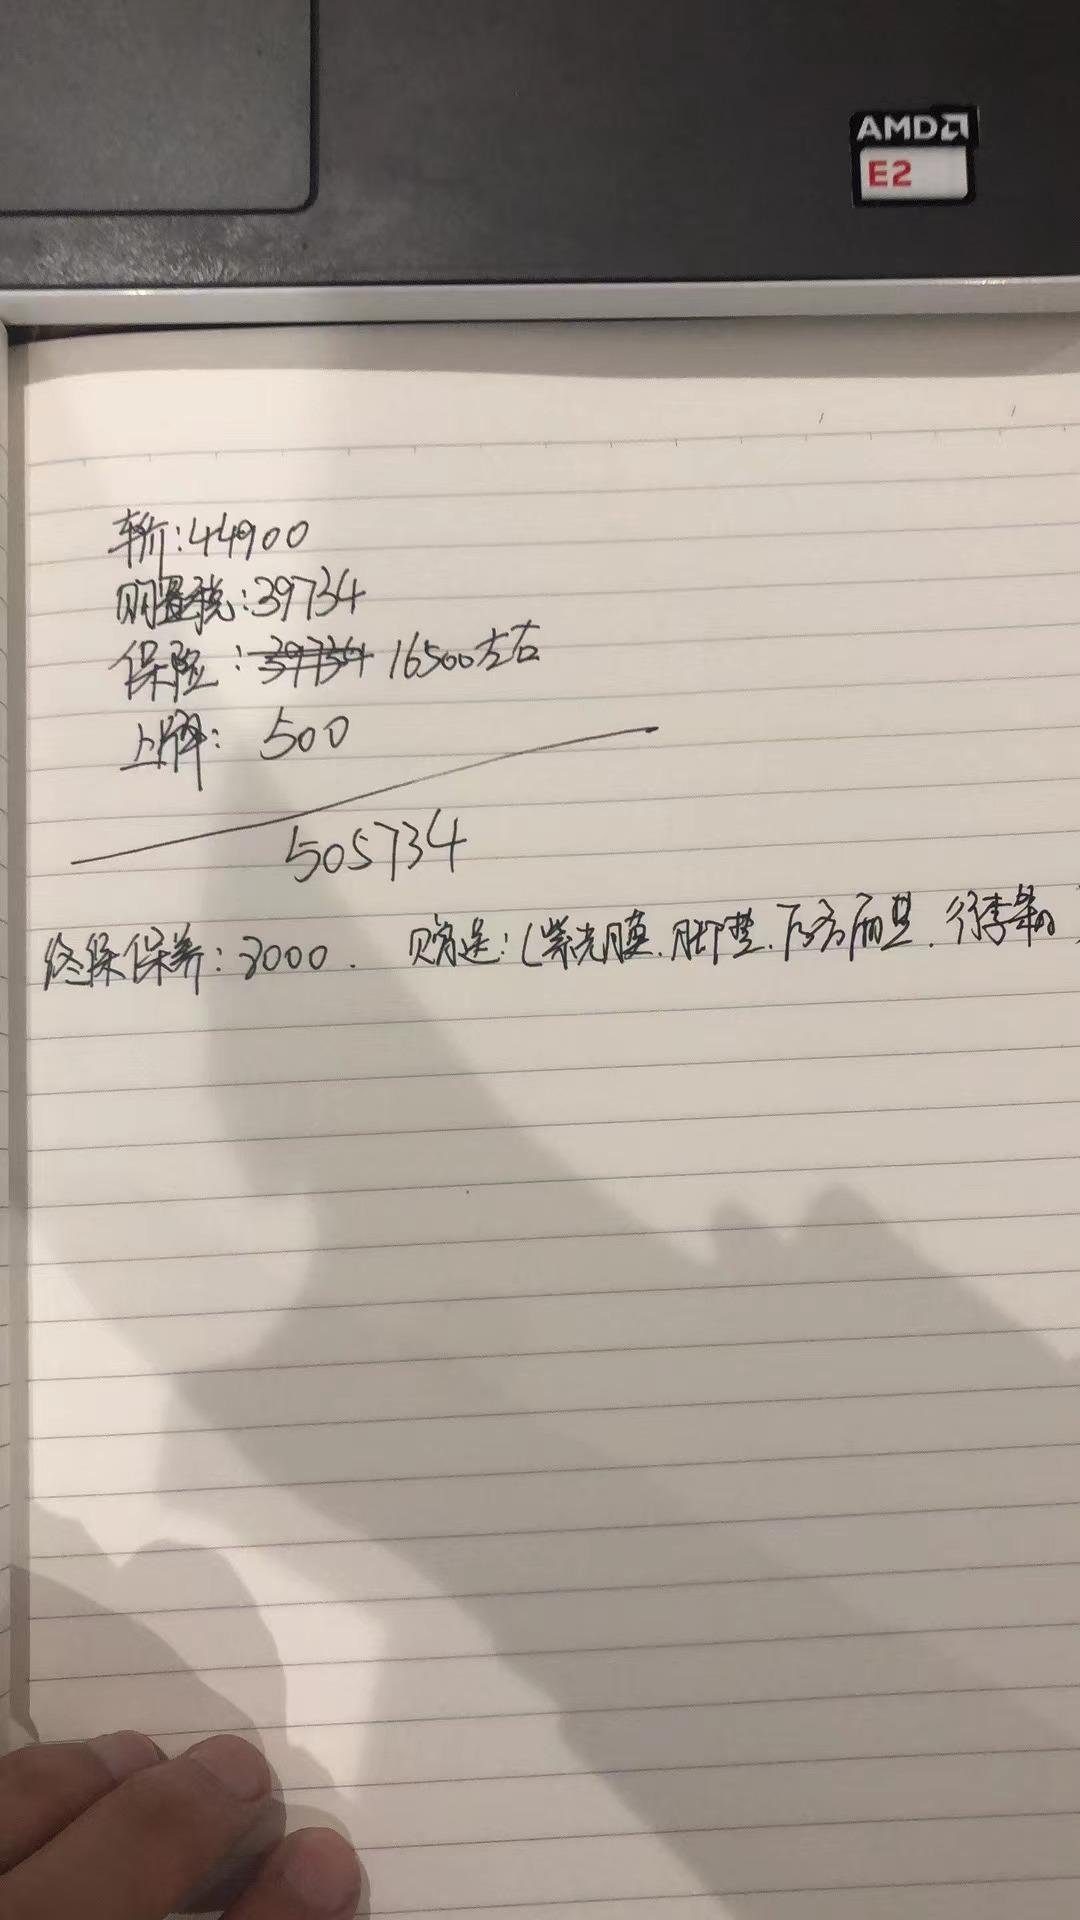 AMD
E2
车价:44900
购置税:39734
保险:39734 16500左右
上牌: 500
505734
终保保养:3000. 赠送:(紫光膜.脚垫.后备箱垫.行李架